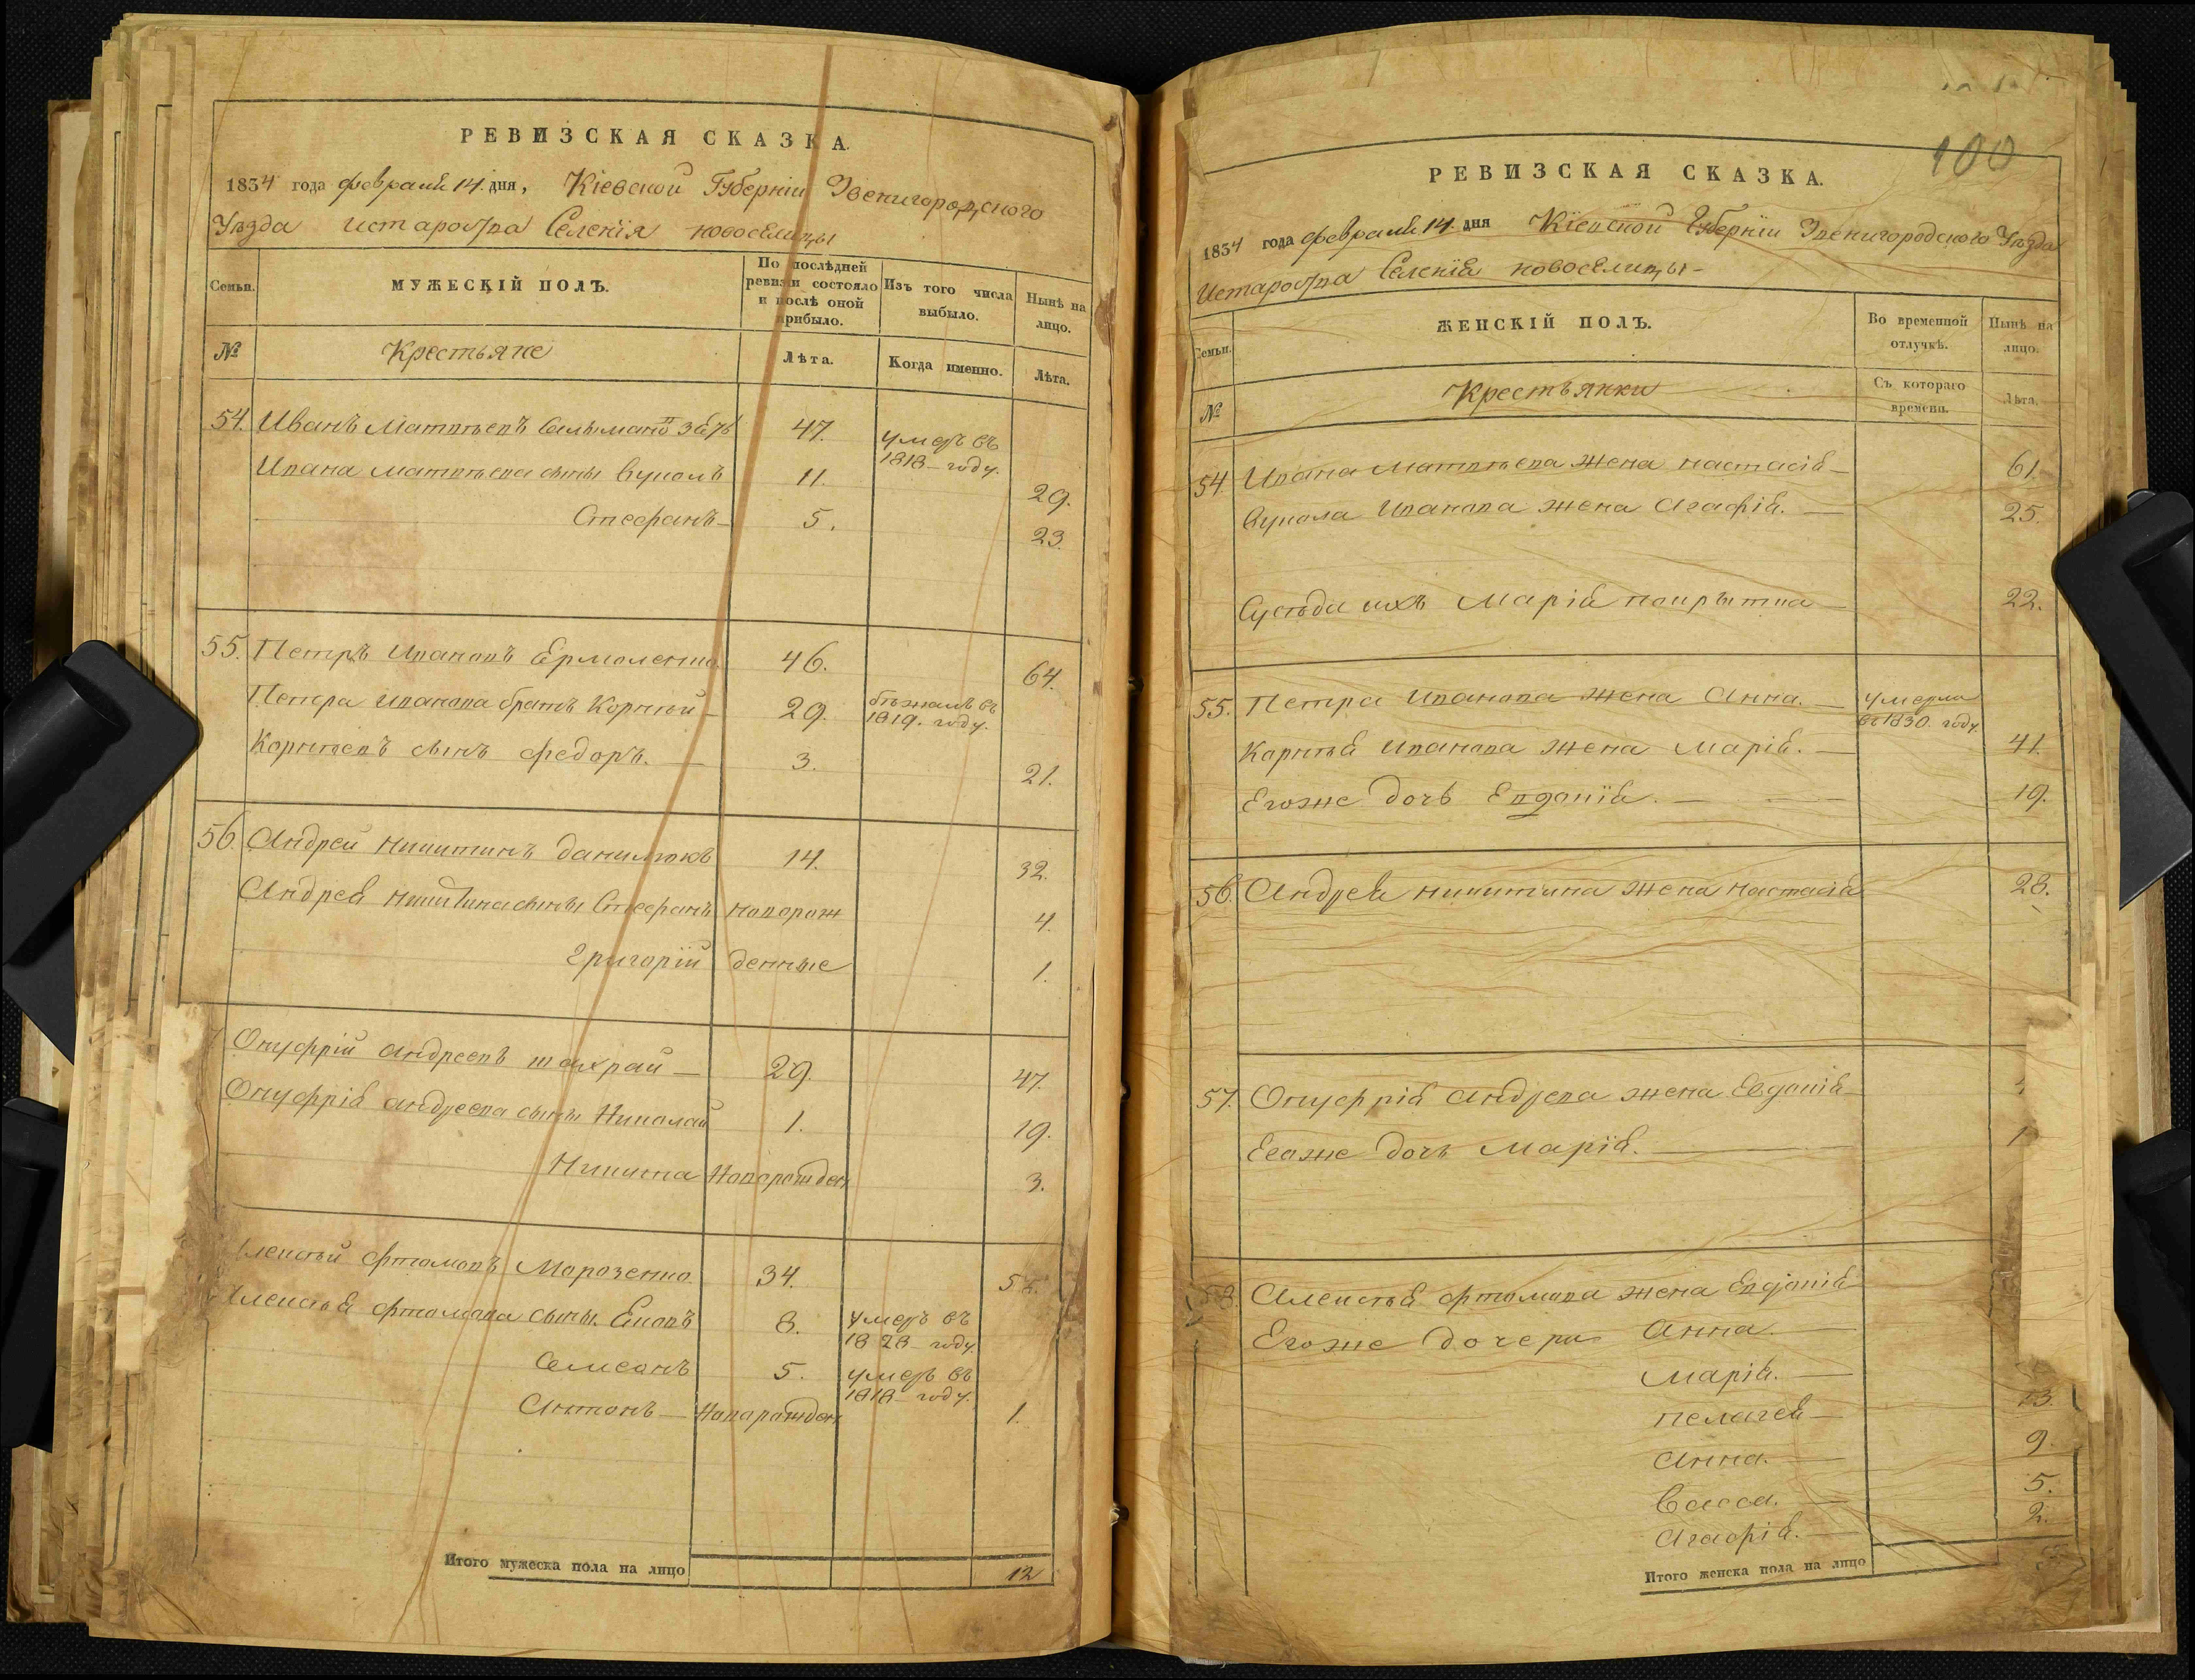 РЕВИЗСКАЯ СКАЗКА.
1834 года февраля 14. дня, Кіевской Губерніи Звенигородского
Уѣзда Истароства Селенія новоселицы
Семьи. МУЖЕСКІЙ ПОЛЪ. По послѣдней ревизіи состояло и послѣ оной прибыло. Изъ того числа выбыло. Нынѣ на лицо.
№ Крестьяне Лѣта. Когда именно. Лѣта.
54. Иванъ Матвѣевъ 47. умеръ въ 1818 году.
Ивана Матвѣева сыны Вуколъ 11. 29.
Стефанъ 5. 23.
55. Петръ Ивановъ Ермоленко 46. 64.
Петра Иванова братъ Корнѣй 29. бѣжалъ въ 1819. году.
Корнѣевъ сынъ Федоръ. 3. 21.
56. Андрей Никитинъ Данилюкъ 14. 32.
Андрея Никитина сыны Стефанъ новорож 4.
Григорій денные 1.
7 Онуфрій Андреевъ шахрай 29. 47.
Онуфрія Андреева сыны Николай 1. 19.
Никита Новорожден 3.
лексѣй Фтомовъ Морозенко 34.
Алексѣя Фтомова сыны. Енохъ 8. умеръ въ 1828 году.
Семеонъ 5. умеръ въ 1818 году.
Антонъ Новорожден 1.
Итого мужеска пола на лицо 12
100
РЕВИЗСКАЯ СКАЗКА.
1834 года февраля 14. дня Кіевской Губерніи Звенигородского Уѣзда
Истароства Селенія новоселицы
Семьи. ЖЕНСКІЙ ПОЛЪ. Во временной отлучкѣ. Нынѣ на лицо.
№ Крестьянки Съ котораго времени. Лѣта.
54. Ивана Матвѣева жена настасія 61.
Вукола Иванова жена Агафія. 25.
Сусѣда ихъ Марія покрытка 22.
55. Петра Иванова жена Анна. умерла въ 1830. году.
Корнѣя Иванова жена Марія. 41.
Егоже дочь Евдокія. 19.
56. Андрея никитина жена настасія 28.
57. Онуфрія Андрева жена Евдокія
Егоже дочь Марія.
58. Алексѣя Фтомова жена Евдокія
Егоже дочери Анна.
Марія.
пелагея 13.
Анна. 9.
Васса. 5.
Агафія. 2.
Итого женска пола на лицо